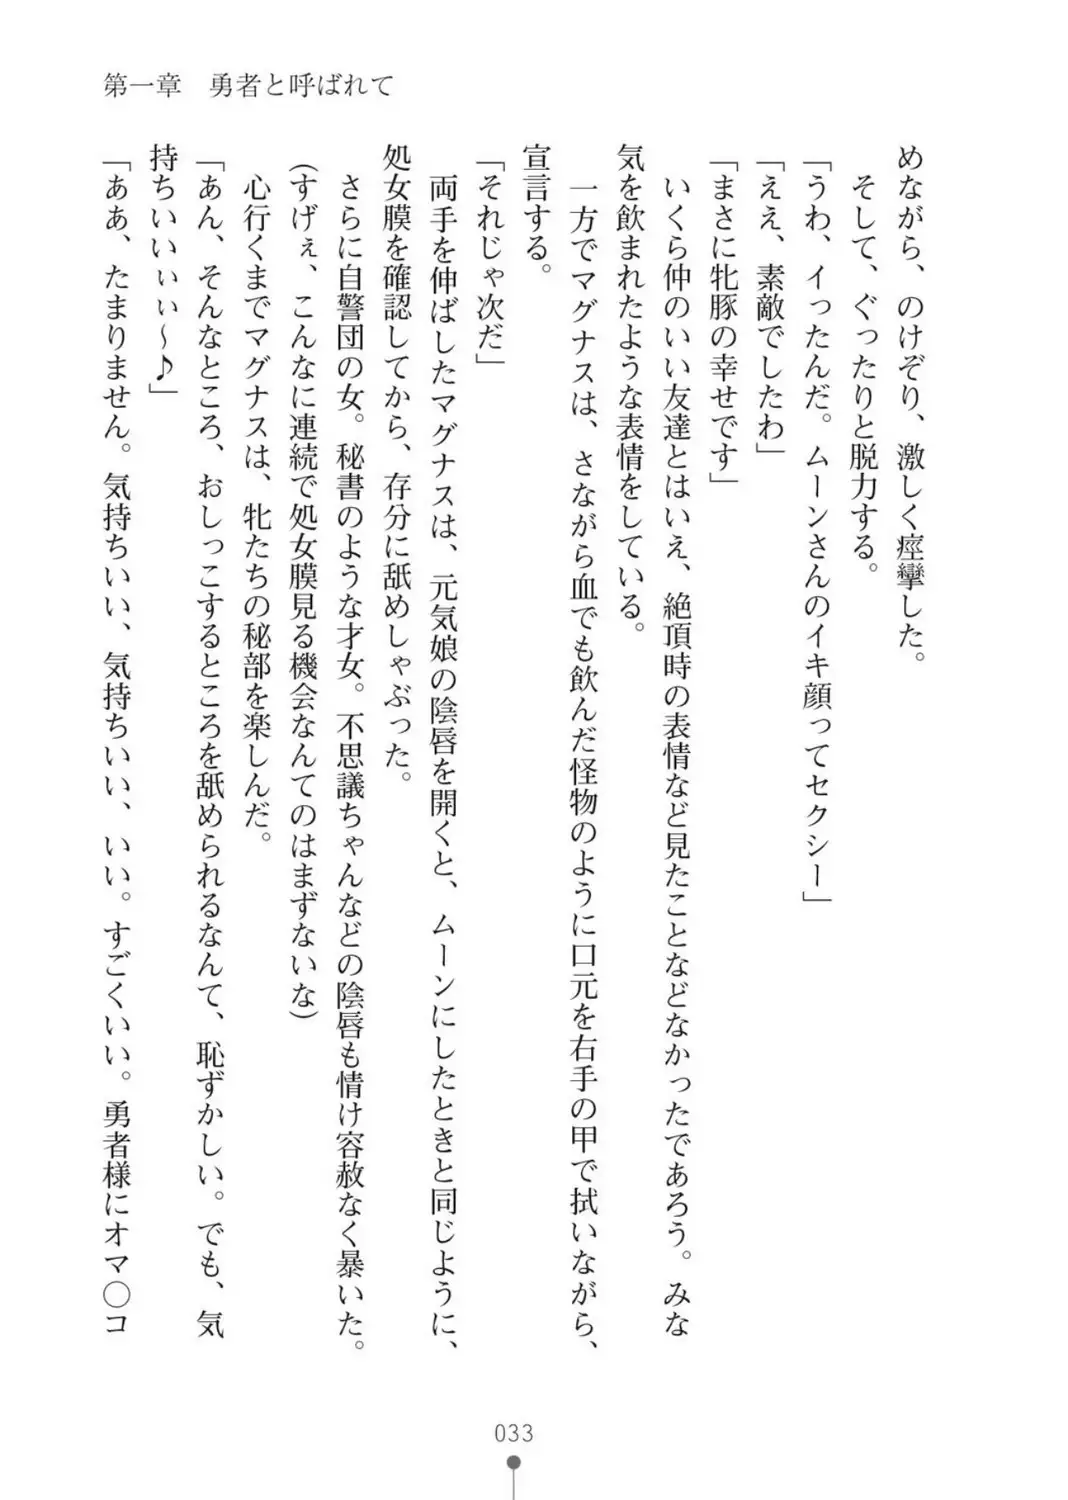 第一章　勇者と呼ばれて
めながら、のけぞり、激しく痙攣した。
そして、ぐったりと脱力する。
「うわ、イったんだ。ムーンさんのイキ顔ってセクシー」
「ええ、素敵でしたわ」
「まさに牝豚の幸せです」
いくら仲のいい友達とはいえ、絶頂時の表情など見たことなどなかったであろう。みな
気を飲まれたような表情をしている。
一方でマグナスは、さながら血でも飲んだ怪物のように口元を右手の甲で拭いながら、
宣言する。
「それじゃ次だ」
両手を伸ばしたマグナスは、元気娘の陰唇を開くと、ムーンにしたときと同じように、
処女膜を確認してから、存分に舐めしゃぶった。
さらに自警団の女。秘書のような才女。不思議ちゃんなどの陰唇も情け容赦なく暴いた。
(すげぇ、こんなに連続で処女膜見る機会なんてのはまずないな)
心行くまでマグナスは、牝たちの秘部を楽しんだ。
「あん、そんなところ、おしっこするところを舐められるなんて、恥ずかしい。でも、気
持ちいいぃぃ〜♪」
「ああ、たまりません。気持ちいい、気持ちいい、いい。すごくいい。勇者様にオマ〇コ
033